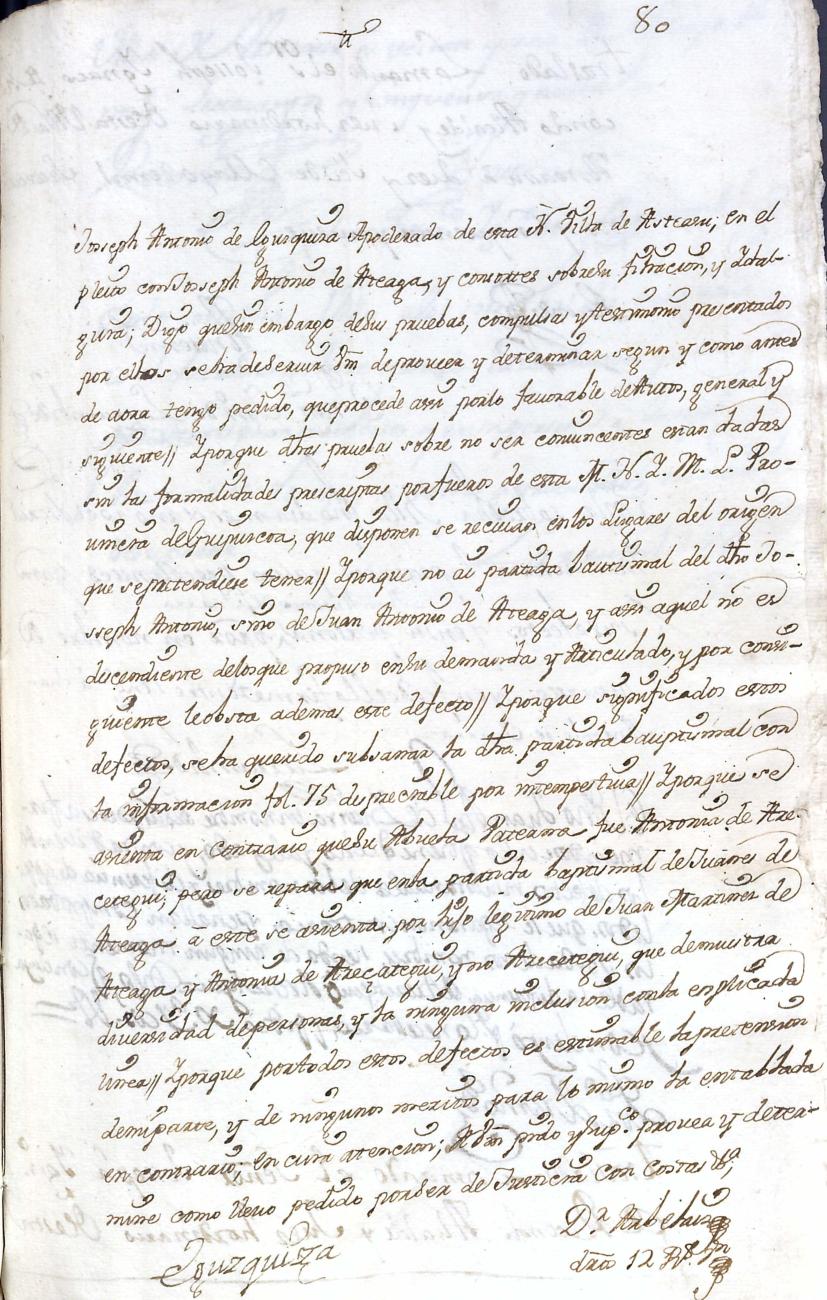 80
Joseph Antonio de Yguzquiza Apoderado de esta N. Villa de Asteasu; en el
pleito con Joseph Antonio de Ateaga, y consortes sobre su filiacion, y Ydal-
guia; Digo que sin embargo de sus pruebas, compulsa y testimonio presentados
por ellos se ha de servir Vm de proveer y determinar segun y como antes
de aora tengo pedido, que procede assi por lo favorable de Autos, general y
siguiente// Yporque dhas pruebas sobre no ser convincentes estan dadas
sin las formalidades prescriptas por fueros de esta M. N. Y. M. L. Pro-
vincia de Guipuscoa, que disponen se recivan en los Lugares del origen
que se pretendiese tener// Yporque no ai partida bautismal del dho Jo-
sseph Antonio, sino de Juan Antonio de Ateaga, y assi aquel no es
descendiente delos que propuso en su demanda y Articulado, y por consi-
guiente le obsta ademas este defecto// Yporque significados estos
defectos, se ha querido subsanar la dha partida bauptismal con
la informacion fol. 75 despreciable por intempestiva// Yporque se
asienta en contrario que su Abuela Paterna fue Antonia de Are-
cetegui; pero se repara que en la partida baptismal de Juanes de
Ateaga â este se asienta por hijo legitimo de Juan Martines de
Ateaga y Antonia de Areçategui, y no Arecetegui, que demuestra
diversidad de personas, y la ninguna inclusion con la explicada
linea// Yporque por todos estos defectos es estimable la pretension
de mi parte, y de ningunos meritos para lo mismo la entablada
en contrario; en cuia atencion; A Vm pido y sup.co provea y deter-
mine como llevo pedido por ser de Justicia con costas &a;
D.r Arbelaiz
dros 12 R.s
Yguzquiza